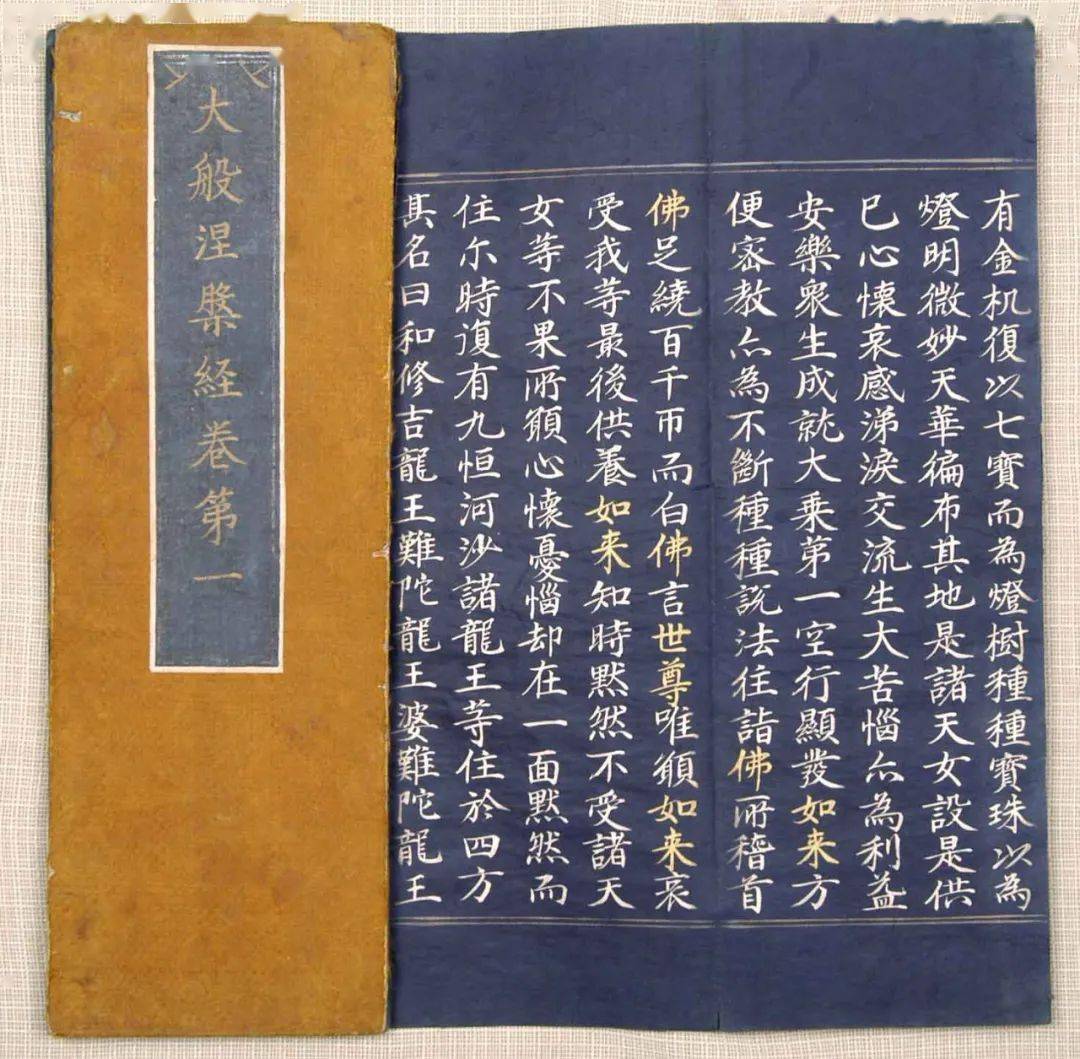 大般涅槃経卷第一
有金机復以七寶而為燈樹種種寶珠以為
燈明微妙天華徧布其地是諸天女設是供
已心懷哀感涕淚交流生大苦惱亦為利益
安樂衆生成就大乘第一空行顯發如来方
便密教亦為不斷種種説法往詣佛所稽首
佛足繞百千帀而白佛言世尊唯願如来哀
受我等最後供養如来知時默然不受諸天
女等不果所願心懷憂惱却在一面默然而
住尒時復有九恒河沙諸龍王等住於四方
其名曰和修吉龍王難陀龍王婆難陀龍王